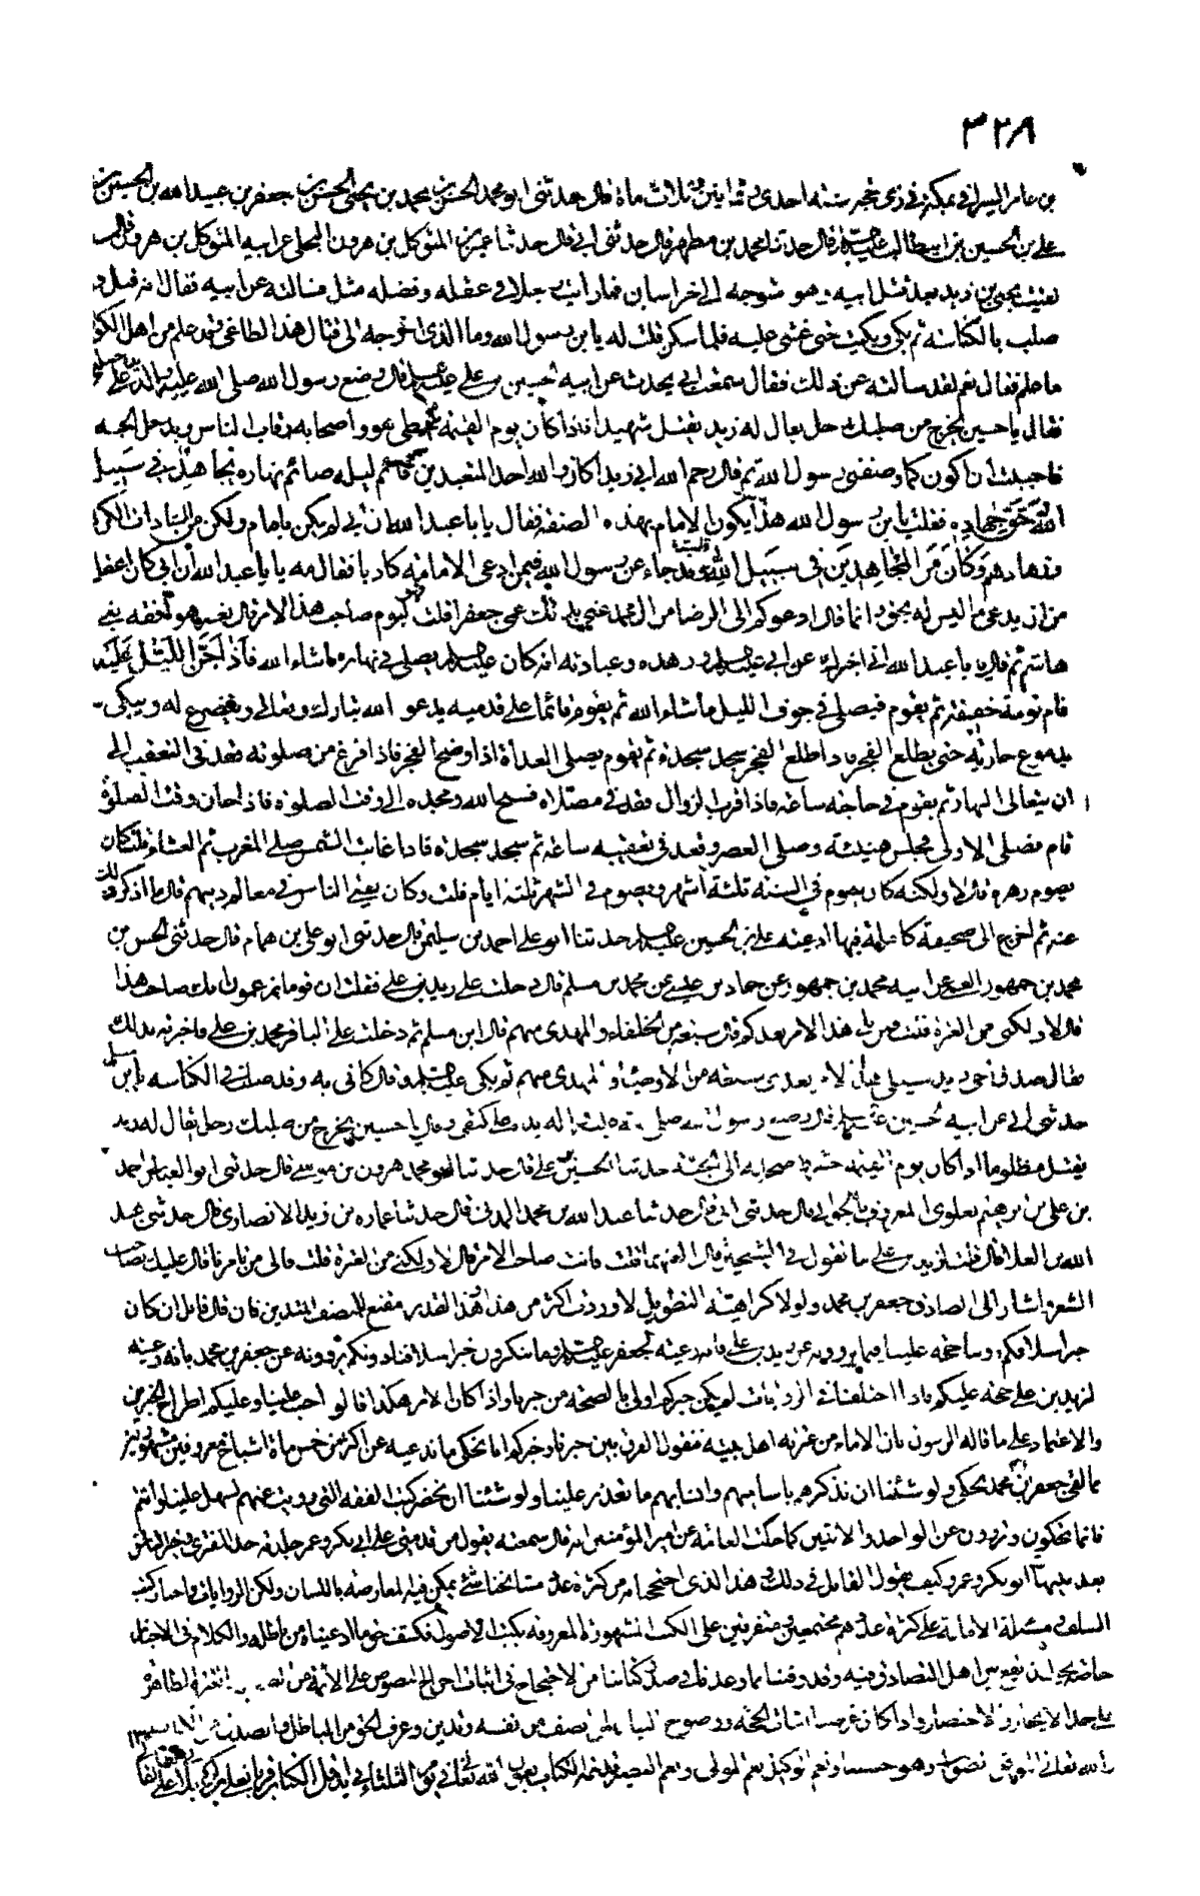 ٣٢٨
بن عامر السيرافي بمكة في ذي حجة سنة احدى وثمانين وثلاث مأة قال حدثنى ابو محمد الحسن بن محمد بن يحيى الحسن بن جعفر بن عبيد الله بن الحسين بن
علي بن الحسين بن ابيطالب قال حدثنا محمد بن مطهر قال حدثنى ابي قال حدثنا عمير بن المتوكل بن هرون البجلي عن ابيه المتوكل بن هرون قال
لقيت يحيى بن زيد بعد قتل ابيه وهو متوجه الى خراسان فما رايت رجلا في عقله وفضله مثل فسالته عن ابيه فقال انه قتل و
صلب بالكناسة ثم بكى وبكيت حتى غشى عليه فلما سكن قلت له يابن رسول الله وما الذى اخرجه الى قتال هذا الطاغي وقد علم من اهل الكوفة
ما علم فقال نعم لقد سالته عن ذلك فقال سمعت ابي يحدث عن ابيه الحسين بن علي قال وضع رسول الله صلى الله عليه واله يده على
فقال يا حسين يخرج من صلبك رجل يقال له زيد يقتل شهيدا فاذا كان يوم القيمة يتخطى هو واصحابه رقاب الناس ويدخل الجنة
فاحببت أن اكون كما وصفنى رسول الله ثم قال رحم الله ابي زيدا كان والله احد المتعبدين قائم ليله صائم نهاره يجاهد في سبيل
الله حق جهاده فقلت يابن رسول الله هكذا يكون الامام بهذه الصفة فقال يابا عبد الله ان ابي لم يكن بامام ولكن من السادات الكرام
وزهادهم وكان من المجاهدين في سبيل الله وقد جاء عن رسول الله فيمن ادعى الامامة كاذبا فقال مه يابا عبد الله ان ابي كان اعقل
من ان يدعي ما ليس له بحق وانما قال ادعوكم الى الرضا من ال محمد عنى بذلك عمى جعفرا قلت فهو اليوم صاحب هذا الامر قال نعم هو افقه بني
هاشم ثم قال يابا عبد الله اني اخبرك عن ابي وزهده وعبادته انه كان يصلي في نهاره ماشاء الله فاذا جن الليل عليه
نام نومة خفيفة ثم يقوم فيصلي في جوف الليل ماشاء الله ثم يقوم قائما على قدميه يدعو الله تبارك وتعالى ويتضرع له ويبكى
بدموع جارية حتى يطلع الفجر فاذا طلع الفجر سجد سجدة ثم يقوم يصلي الغداة اذا وضح الفجر فاذا فرغ من صلوته قعد في التعقيب الى
ان يتعالى النهار ثم يقوم في حاجته ساعة فاذا قرب الزوال قعد في مصلاه فسبح الله ومجده الى وقت الصلوة فاذا حان وقت الصلوة
قام فصلى الاولى وجلس هنيئة وصلى العصر وقعد في تعقيبه ساعة ثم سجد سجدة فاذا غابت الشمس صلى المغرب ثم العشاء قلت كان
يصوم دهره قال لا ولكنه كان يصوم في السنة ثلثة اشهر ويصوم في الشهر ثلثة ايام قلت وكان يفتي الناس في معالم دينهم قال ما اذكر ذلك
عنه ثم اخرج الى صحيفة كاملة فيها ادعية علي بن الحسين حدثنا ابو علي احمد بن سليمن قال حدثنى ابو علي بن همام قال حدثنى الحسن بن
محمد بن جمهور العمي عن ابيه محمد بن جمهور عن حماد بن عيسى عن محمد بن مسلم قال دخلت على زيد بن علي فقلت ان قوما يزعمون انك صاحب هذا
قال لا ولكنى من العترة قلت فمن يلي هذا الامر بعدكم قال سبعة من الخلفاء والمهدى منهم قال ابن مسلم ثم دخلت على الباقر محمد بن علي فاخبرته بذلك
فقال صدق اخي زيد سيلي هذا الامر بعدى سبعة من الاوصياء والمهدى منهم ثم بكى وقال كأني به وقد صلب في الكناسة يابن مسلم
حدثنى ابي عن ابيه الحسين قال وضع رسول الله صلى الله عليه واله يده على كتفي وقال يا حسين يخرج من صلبك رجل يقال له زيد
يقتل مظلوما اذا كان يوم القيمة حشر واصحابه الى الجنة حدثنا الحسين بن علي قال حدثنا ابو محمد هرون بن موسى قال حدثنى ابو العباس احمد
بن علي بن ابرهيم العلوى المعروف بالجواني قال حدثنى ابي قال حدثنا عبد الله بن محمد المدني قال حدثنا عمارة بن زيد الانصارى قال حدثنى عبد
الله بن العلا قال قلت لزيد بن علي ما تقول في الشيخين قال العنهما قلت فانت صاحب الامر قال لا ولكنى من العترة قلت فالى من تامرنا قال عليك بصاحب
الشعر واشار الى الصادق جعفر بن محمد ولولا كراهية التطويل لاوردت اكثر من هذا وهذا القدر مقنع للمنصف المتدين فان قال قائل ان كان
خبر اسلافكم وسا حجة علينا فيما يروونه عن زيد بن علي لجعفر وما تنكرون خبر اسلافنا دونكم يروونه عن جعفر بن محمد بانه دعيه
لزيد بن علي حجة عليكم فاذا اختلفتا الروايات لم يكن خبركم اولى بالصحة من خبرنا واذا كان الامر هكذا قالوا وجب علينا وعليكم اطراح الخبرين
والاعتماد على ما قاله الرسول بان الامام من عترته اهل بيته فنقول الفرق بين خبرنا وخبركم انا نحكى ما ندعيه عن اكثر من خمس مأة اشياخ معروفين مشهورين
ممالقي جعفر بن محمد يحكى ولو شئنا ان نذكرهم باسامهم وانسابهم ما تعذر علينا ولو شئنا ان نحضر كتب الفقه التي رويت عنهم لسهل علينا وانتم
فانما تحكون وتروون عن الواحد والاثنين كما حكت العامة عن امير المؤمنين انه قال سمعته يقول من فضلنى على ابي بكر وعمر جلدته حد المفترى وخير الناس
بعد نبيها ابو بكر وعمر وكيف يقول القائل في ذلك وهذا الذى احتججنا به من كثرة عدد مشايخنا شئ يمكن فيه المعارضة باللسان ولكن الروايات واخبار كتب
السلف في مسئلة الامامة على كثرة عددهم مجتمعين ومتفرقين على الكتب المشهورة المعروفة بكتب الاصول فكشف حق ما ادعيناه من باطله والكلام في الاخبار
على حد الايجاز والاختصار اذا كان غرضنا اثبات الحجة ووضوح البيان لمن انصف من نفسه وتدين وعرف الحق من الباطل
والله تعالى الموفق للصواب وهو حسبنا ونعم الوكيل نعم المولى ونعم النصير